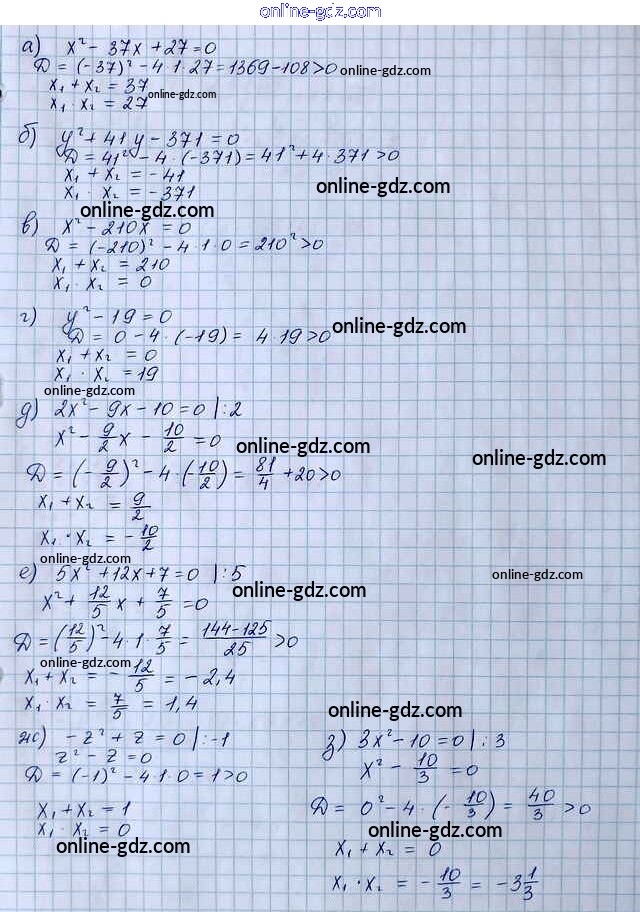 online-gdz.com
а) x² - 37x + 27 = 0
D = (-37)² - 4·1·27 = 1369 - 108 > 0 online-gdz.com
x₁ + x₂ = 37
x₁ · x₂ = 27 online-gdz.com
б) y² + 41y - 371 = 0
D = 41² - 4·(-371) = 41² + 4·371 > 0
x₁ + x₂ = -41
x₁ · x₂ = -371 online-gdz.com
online-gdz.com
в) x² - 210x = 0
D = (-210)² - 4·1·0 = 210² > 0 online-gdz.com
x₁ + x₂ = 210
x₁ · x₂ = 0
г) y² - 19 = 0
D = 0 - 4·(-19) = 4·19 > 0 online-gdz.com
x₁ + x₂ = 0
x₁ · x₂ = 19
online-gdz.com
д) 2x² - 9x - 10 = 0 |:2
x² - 9/2 x - 10/2 = 0 online-gdz.com
online-gdz.com
D = (-9/2)² - 4·(-10/2) = 81/4 + 20 > 0
x₁ + x₂ = 9/2
x₁ · x₂ = -10/2
online-gdz.com
е) 5x² + 12x + 7 = 0 |:5 online-gdz.com
x² + 12/5 x + 7/5 = 0 online-gdz.com
D = (12/5)² - 4·1·7/5 = (144-125)/25 > 0
online-gdz.com
x₁ + x₂ = -12/5 = -2,4
x₁ · x₂ = 7/5 = 1,4
online-gdz.com
ж) -z² + z = 0 |:-1
z² - z = 0
D = (-1)² - 4·1·0 = 1 > 0
x₁ + x₂ = 1
x₁ · x₂ = 0
online-gdz.com
з) 3x² - 10 = 0 |:3
x² - 10/3 = 0
online-gdz.com
D = 0² - 4·(-10/3) = 40/3 > 0
online-gdz.com
x₁ + x₂ = 0
x₁ · x₂ = -10/3 = -3 1/3